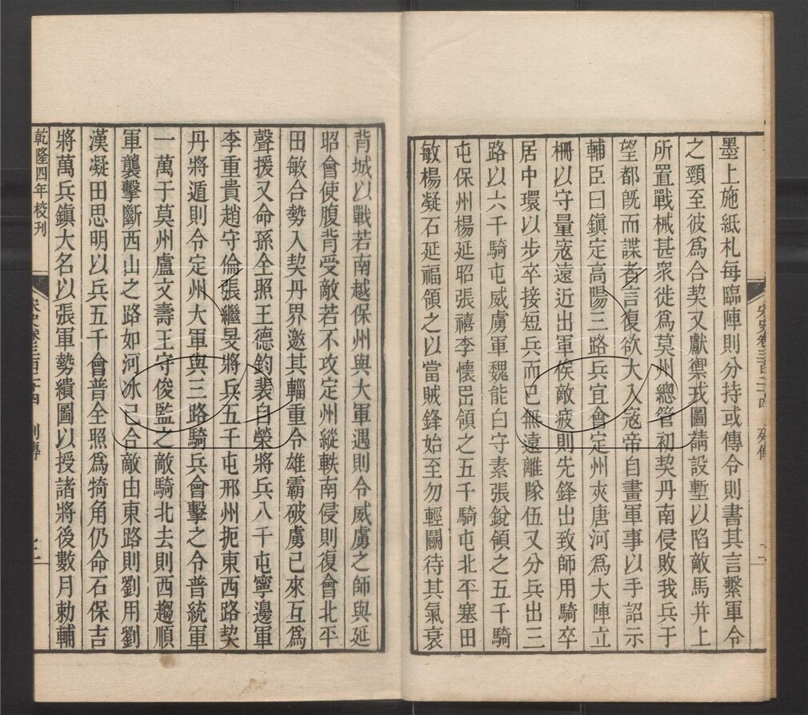 墨上施紙札每臨陣則分持或傳令則書其言繫軍令
之頸至彼爲合契又獻禦戎圖請設塹以陷敵馬并上
所置戰械甚衆徙爲莫州總管初契丹南侵敗我兵于
望都既而諜者言復欲大入寇帝自畫軍事以手詔示
輔臣曰鎮定高陽三路兵宜會定州夾唐河爲大陣立
柵以守量寇遠近出軍俟敵疲則先鋒出致師用騎卒
居中環以步卒接短兵而已無遠離隊伍又分兵出三
路以六千騎屯威虜軍魏能白守素張銳領之五千騎
屯保州楊延昭張禧李懷岊領之五千騎屯北平塞田
敏楊凝石延福領之以當賊鋒始至勿輕鬭待其氣衰
宋史卷三百二十四 列傳
背城以戰若南越保州與大軍遇則令威虜之師與延
昭會使腹背受敵若不攻定州縱軼南侵則復會北平
田敏合勢入契丹界邀其輜重令雄霸破虜已來互爲
聲援又命孫全照王德鈞裴自榮將兵八千屯寧邊軍
李重貴趙守倫張繼旻將兵五千屯邢州扼東西路契
丹將遁則令定州大軍與三路騎兵會擊之令普統軍
一萬于莫州盧文壽王守俊監之敵騎北去則西趨順
軍襲擊斷西山之路如河冰已合敵由東路則劉用劉
漢凝田思明以兵五千會普全照爲掎角仍命石保吉
將萬兵鎮大名以張軍勢繢圖以授諸將後數月勅輔
乾隆四年校刊
宋史卷三百二十四 列傳